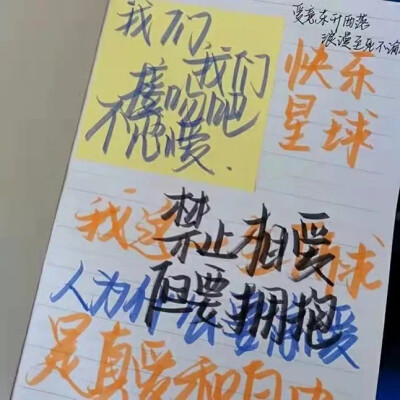 爱意东升西落
浪漫至死不渝
我们
我们
接吻吧
不恋爱.
快乐
星球
我这 求
禁止相爱
但要拥抱
人为什 爱
是真爱和自由